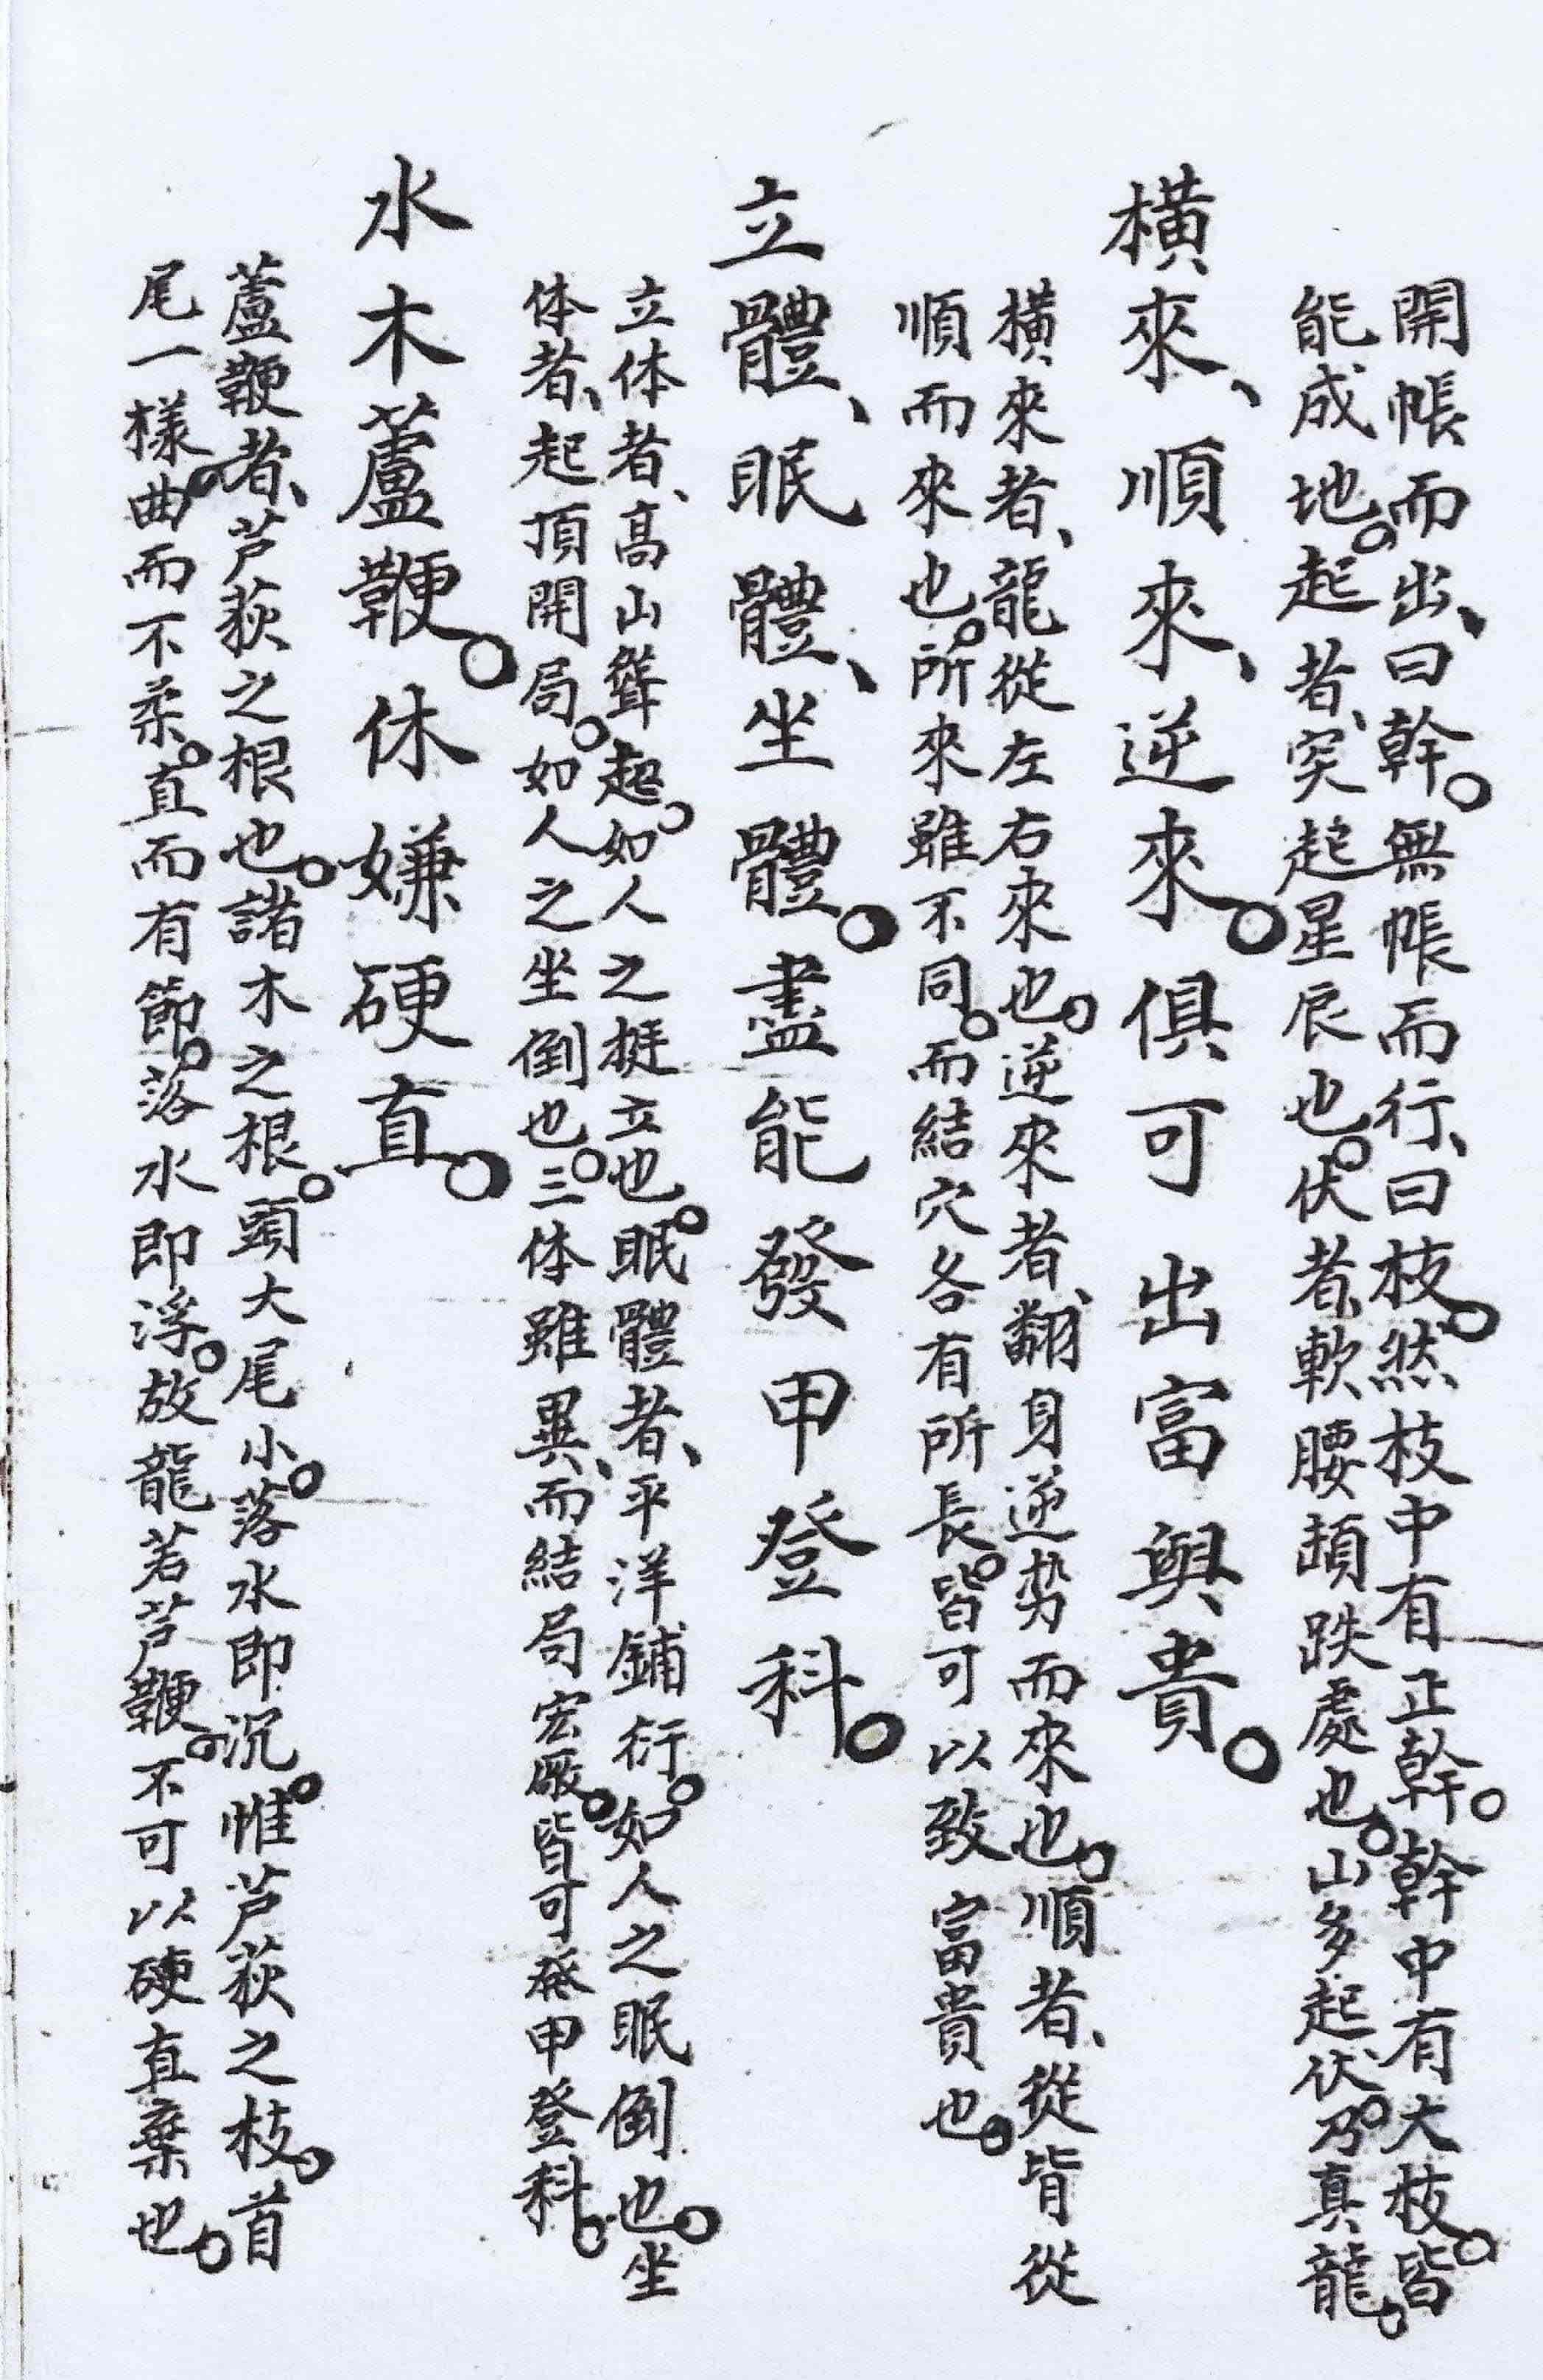 開帳而出、曰幹。無帳而行、曰枝。然枝中有正幹。幹中有大枝。皆
能成地。起者、突起星辰也。伏者、軟腰頓跌處也。山多起伏。乃真龍。
橫來、順來、逆來。俱可出富與貴。
橫來者、龍從左右來也。逆來者、翻身逆势而來也。順者、從背從
順而來也。所來雖不同。而結穴各有所長。皆可以致富貴也。
立體、眠體、坐體。盡能發甲登科。
立体者、高山聳起。如人之挺立也。眠體者、平洋鋪衍。如人之眠倒也。坐
体者、起頂開局。如人之坐倒也。三体雖異、而結局宏厰。皆可発甲登科。
水木蘆鞭。休嫌硬直。
蘆鞭者、芦荻之根也。諸木之根。頭大尾小。落水即沉。惟芦荻之枝。首
尾一樣。曲而不柔。直而有節。落水即浮。故龍若芦鞭。不可以硬直棄也。